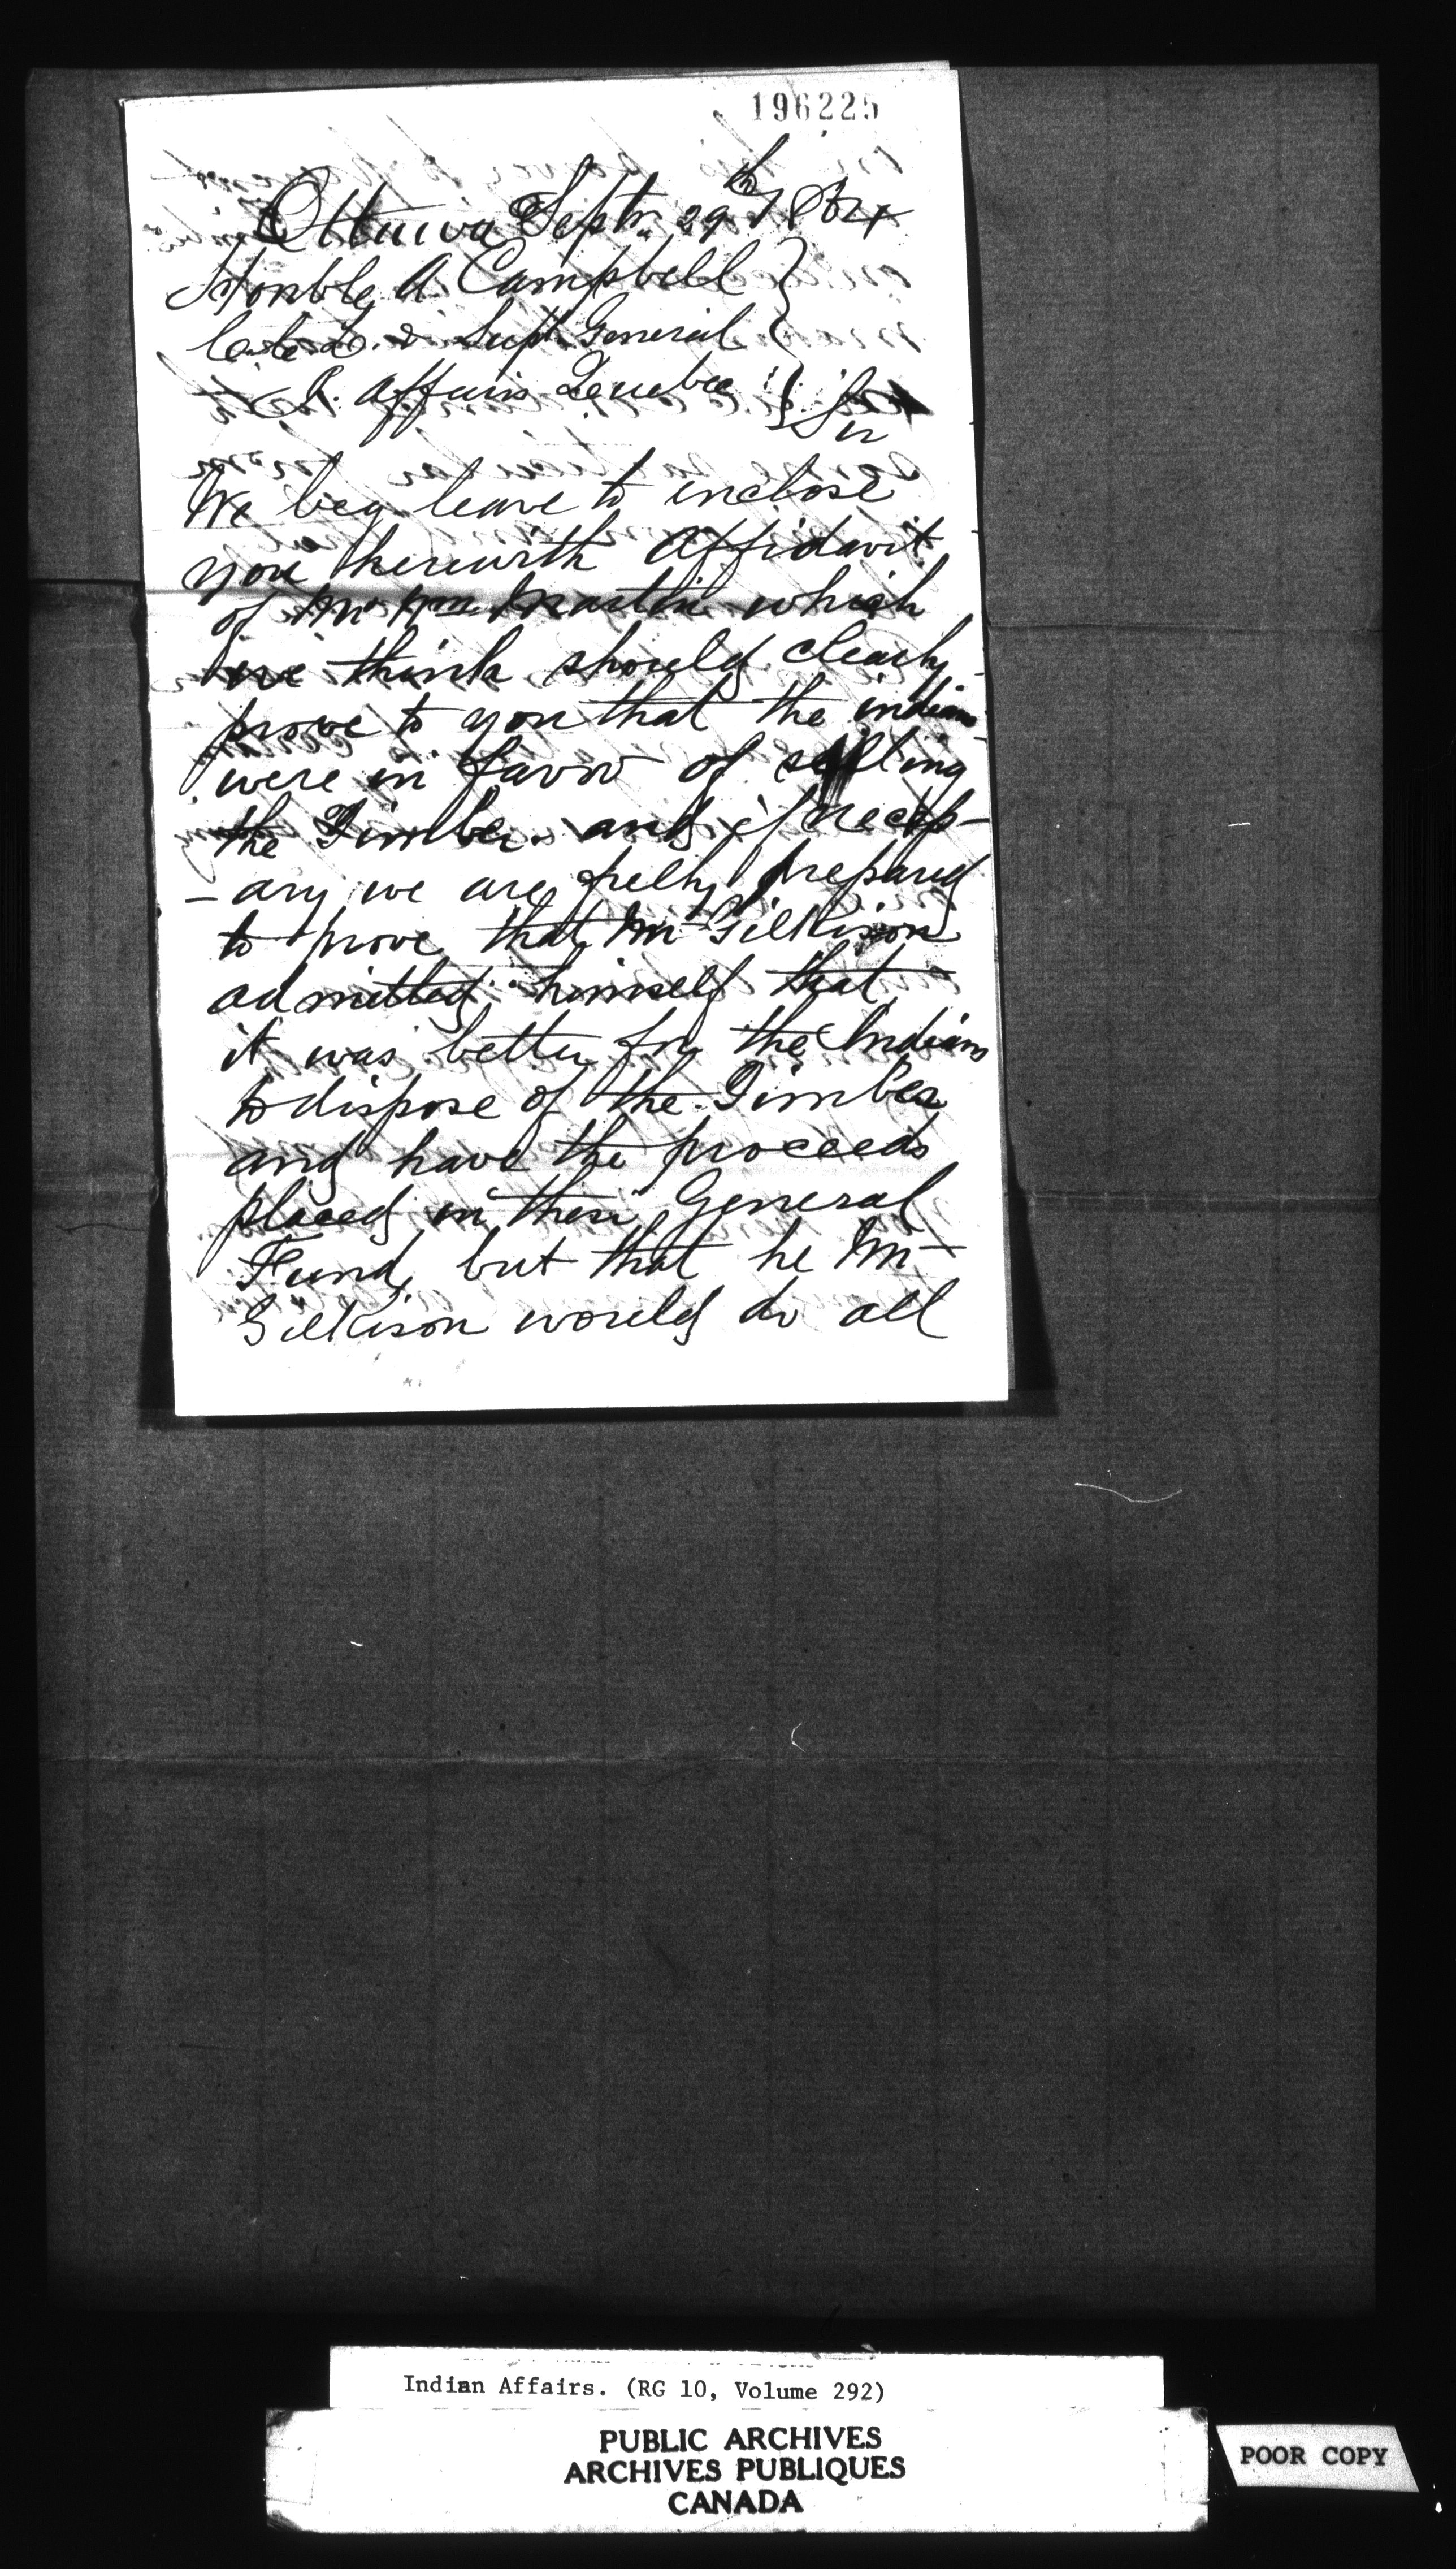 196225
Ottawa Septr. 29th 1864
Honble A Campbell
C. C. L. & Supt General
I. Affairs Quebec
Sir
We beg leave to inclose
you herewith Affidavit
of Mr Wm Martin which
we think should clearly
prove to you that the indians
were in favor of selling
the Timber. and if necess-
-ary we are fully prepared
to prove that Mr Gilkison
admitted himself that
it was better for the Indians
to dispose of the Timber
and have the proceeds
placed in their General
Fund, but that he Mr
Gilkison would do all
Indian Affairs. (RG 10, Volume 292)
PUBLIC ARCHIVES
ARCHIVES PUBLIQUES
CANADA
POOR COPY